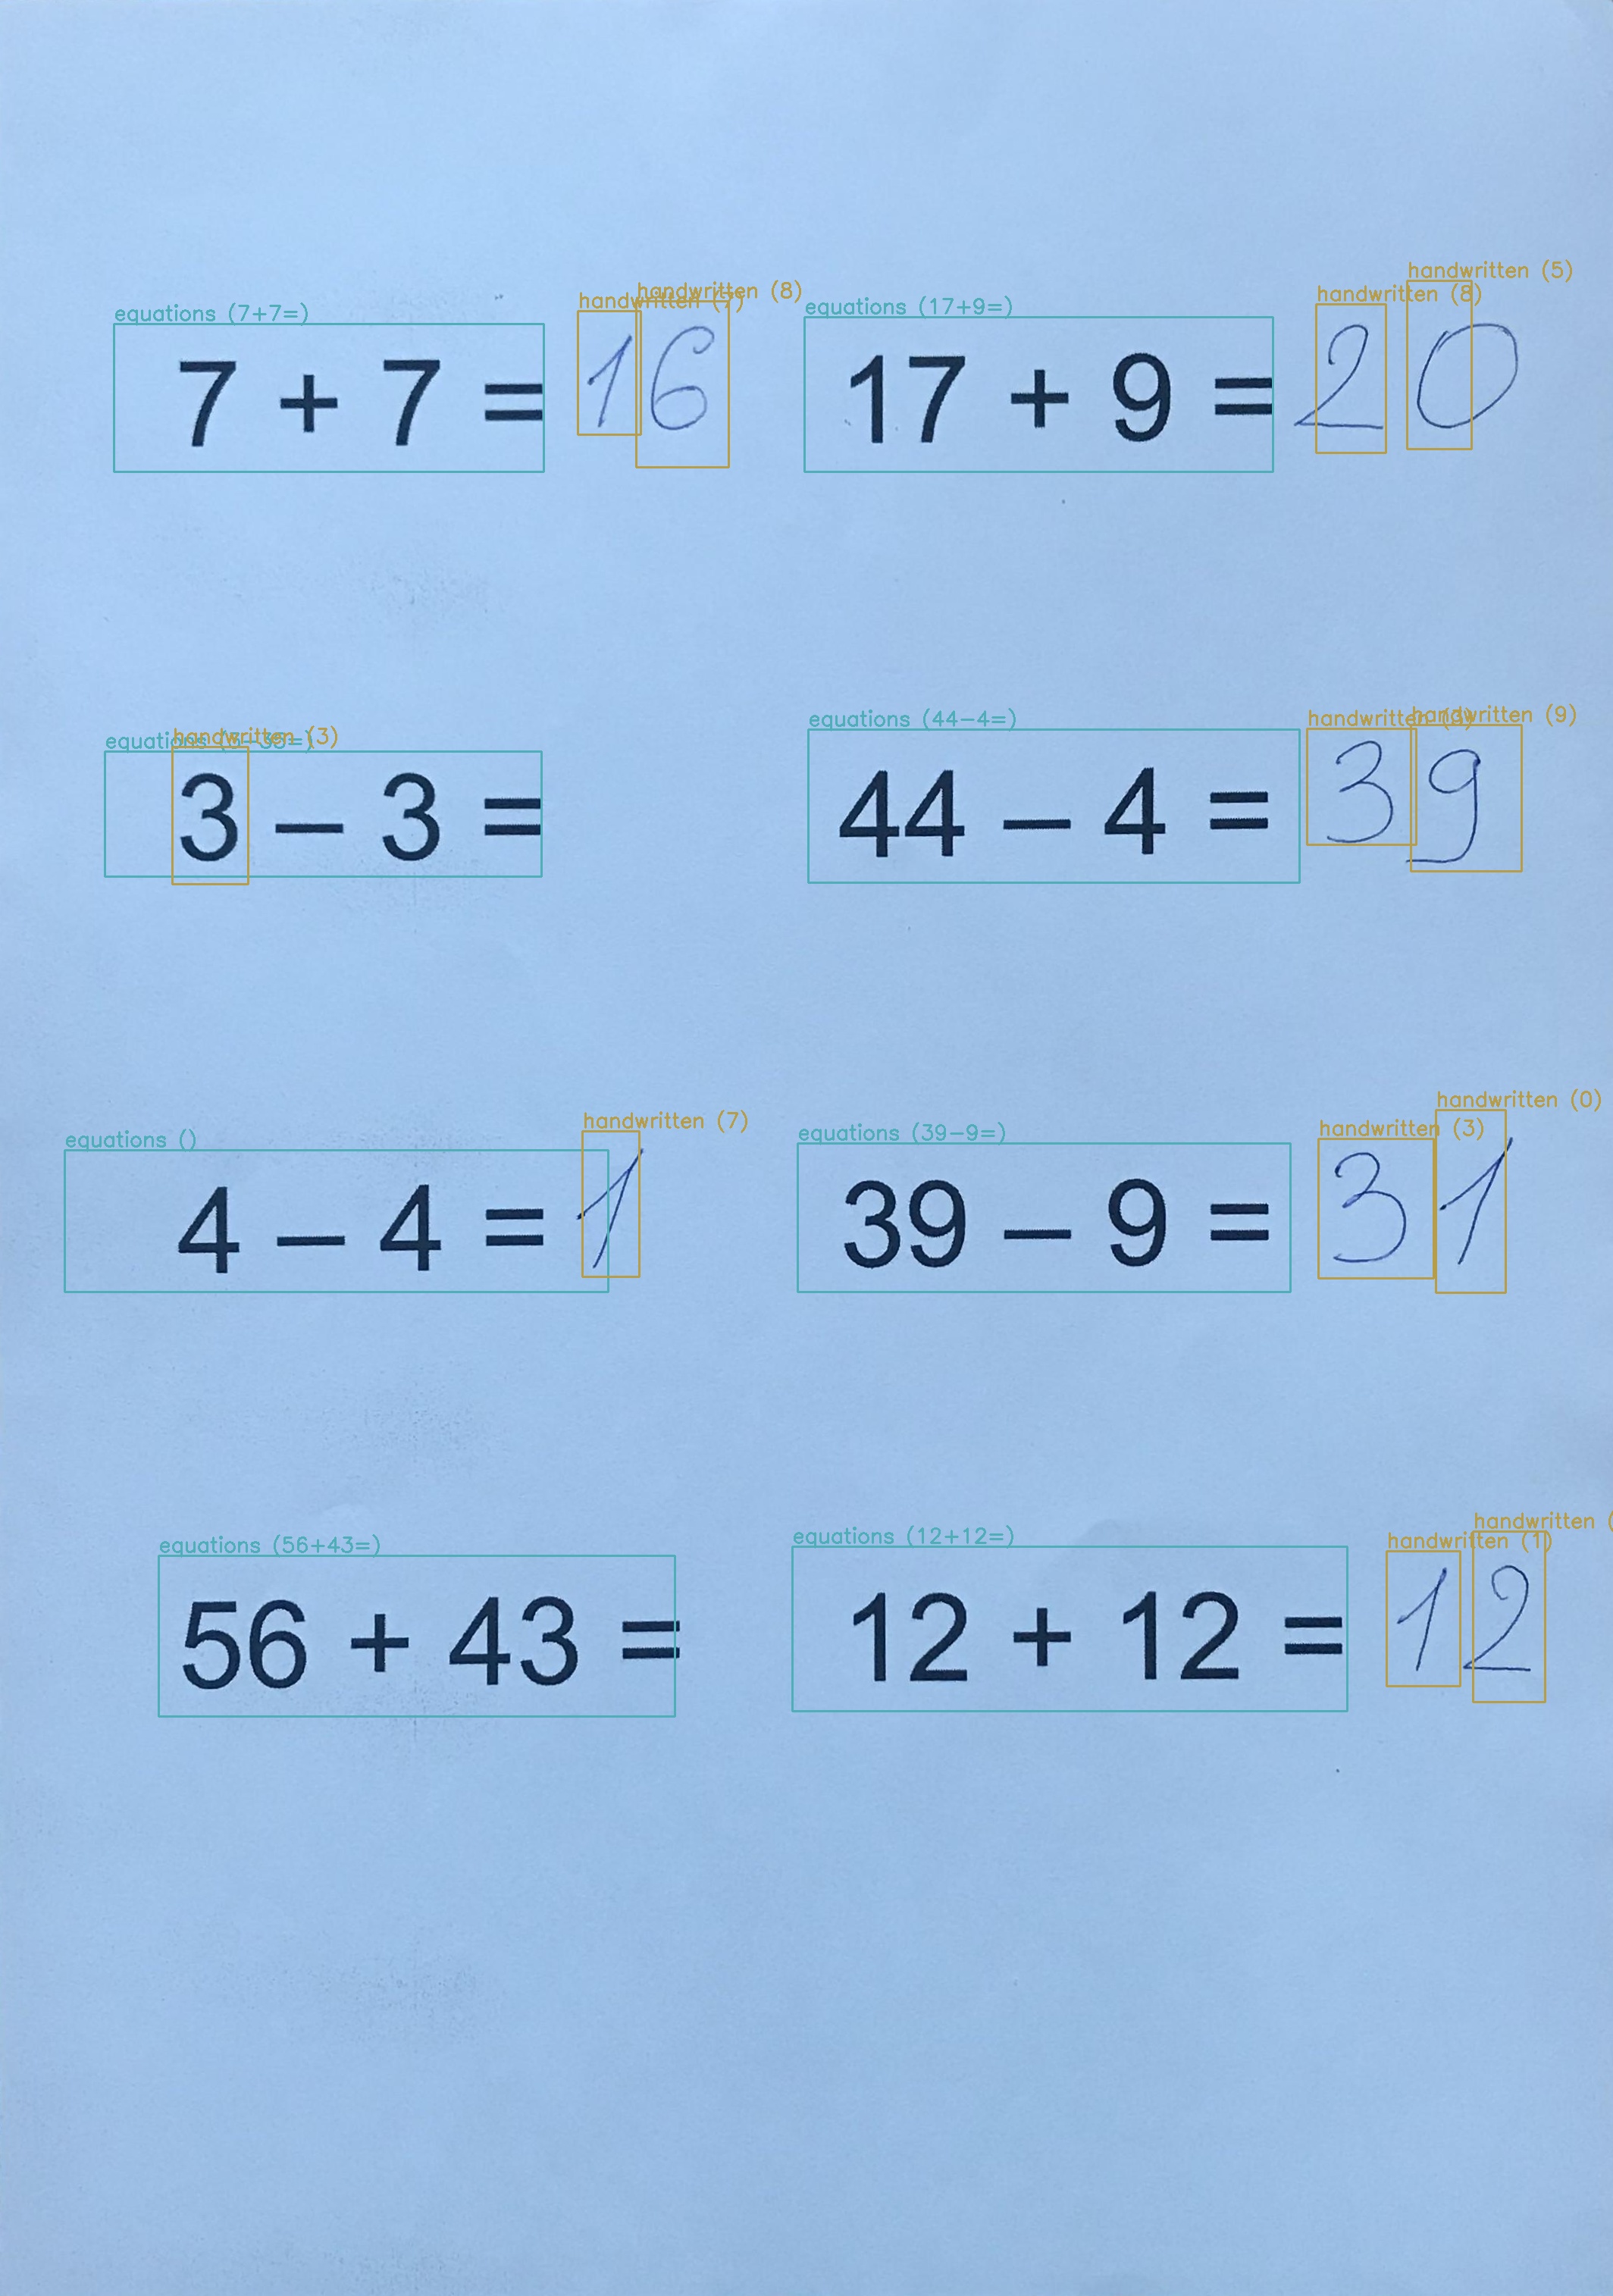 equations (7+7=) handwritten (8) equations (17+9=) handwritten (8) handwritten (5)
7 + 7 = 16 17 + 9 = 20
handwritten (3) equations (44-4=) handwritten handwritten (9)
3 – 3 = 44 – 4 = 39
equations () handwritten (7) equations (39-9=) handwritten (3) handwritten (0)
4 – 4 = 1 39 – 9 = 31
equations (56+43=) equations (12+12=) handwritten (1) handwritten (
56 + 43 = 12 + 12 = 12